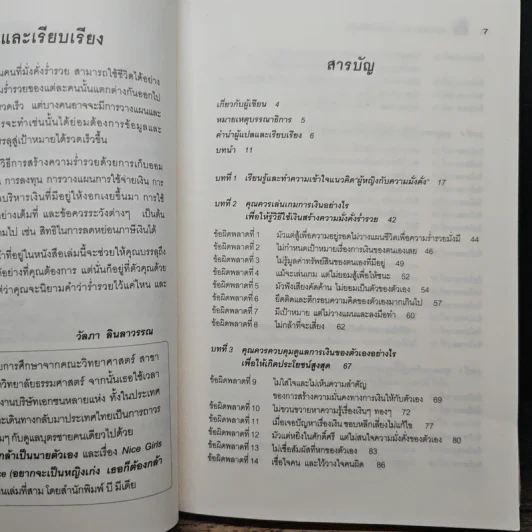 และเรียบเรียง
นคนที่มั่งคั่งร่ำรวย สามารถใช้ชีวิตได้อย่าง
ร่ำรวยของแต่ละคนนั้นแตกต่างกันออกไป
รวดเร็ว แต่บางคนอาจจะมีการวางแผนและ
จะทำเช่นนั้นได้ย่อมต้องการข้อมูลและ
รลุสู่เป้าหมายได้รวดเร็วขึ้น
วิธีการสร้างความร่ำรวยด้วยการเก็บออม
การลงทุน การวางแผนการใช้จ่ายเงิน การ
บริหารเงินที่มีอยู่ให้งอกเงยขึ้นมา การใช้
ย่างเต็มที่ และข้อควรระวังต่างๆ เป็นต้น
ไป เช่น สิทธิในการลดหย่อนภาษีเงินได้
ที่อยู่ในหนังสือเล่มนี้จะช่วยให้คุณบรรลุถึง
อย่างที่คุณต้องการ แต่นั่นก็อยู่ที่ตัวคุณด้วย
ว่าคุณจะนิยามคำว่าร่ำรวยไว้แค่ไหน และ
วัลภา ลินลาวรรณ
การศึกษาจากคณะวิทยาศาสตร์ สาขา
วิทยาลัยธรรมศาสตร์ จากนั้นเธอใช้เวลา
งานบริษัทเอกชนหลายแห่ง ทั้งในประเทศ
เดินทางกลับมาประเทศไทยเป็นการถาวร
ๆ กับดูแลบุตรชายคนเดียวไปด้วย
กล้าเป็นนายตัวเอง และเรื่อง Nice Girls
ce (อยากจะเป็นหญิงเก่ง เธอก็ต้องกล้า
เล่มที่สาม โดยสำนักพิมพ์ บี มีเดีย
7
สารบัญ
เกี่ยวกับผู้เขียน 4
หมายเหตุบรรณาธิการ 5
คำนำผู้แปลและเรียบเรียง 6
บทนำ 11
บทที่ 1 เรียนรู้และทำความเข้าใจแนวคิด"ผู้หญิงกับความมั่งคั่ง" 17
บทที่ 2 คุณควรเล่นเกมการเงินอย่างไร
เพื่อให้รู้วิธีใช้เงินสร้างความมั่งคั่งร่ำรวย 42
ข้อผิดพลาดที่ 1 มัวแต่สู้เพื่อความอยู่รอดไม่วางแผนชีวิตเพื่อความร่ำรวยมั่งมี 44
ข้อผิดพลาดที่ 2 ไม่กำหนดเป้าหมายเรื่องการเงินของตนเองเลย 46
ข้อผิดพลาดที่ 3 ไม่รู้มูลค่าทรัพย์สินของตนเองที่มีอยู่ 49
ข้อผิดพลาดที่ 4 แม้จะเล่นเกม แต่ไม่ยอมสู้เพื่อให้ชนะ 52
ข้อผิดพลาดที่ 5 มัวฟังเสียงคัดค้าน ไม่ยอมเป็นตัวของตัวเอง 54
ข้อผิดพลาดที่ 6 ยึดติดและตีกรอบความคิดของตัวเองมากเกินไป 57
ข้อผิดพลาดที่ 7 มีเป้าหมาย แต่ไม่วางแผนและลงมือทำ 60
ข้อผิดพลาดที่ 8 ไม่กล้าที่จะเสี่ยง 64
บทที่ 3 คุณควรควบคุมดูแลการเงินของตัวเองอย่างไร
เพื่อให้เกิดประโยชน์สูงสุด 67
ข้อผิดพลาดที่ 9 ไม่ใส่ใจและไม่เห็นความสำคัญ
ของการสร้างความมั่นคงทางการเงินให้กับตัวเอง 69
ข้อผิดพลาดที่ 10 ไม่ขวนขวายหาความรู้เรื่องเงินๆ ทองๆ 72
ข้อผิดพลาดที่ 11 เมื่อเจอปัญหาเรื่องเงิน ชอบหลีกเลี่ยงไม่แก้ไข 77
ข้อผิดพลาดที่ 12 มัวแต่หยิ่งในศักดิ์ศรี แต่ไม่สนใจความมั่งคั่งของตัวเอง 80
ข้อผิดพลาดที่ 13 ไม่เชื่อสัมผัสที่หกของตัวเอง 83
ข้อผิดพลาดที่ 14 เชื่อใจคน และไว้วางใจคนผิด 86